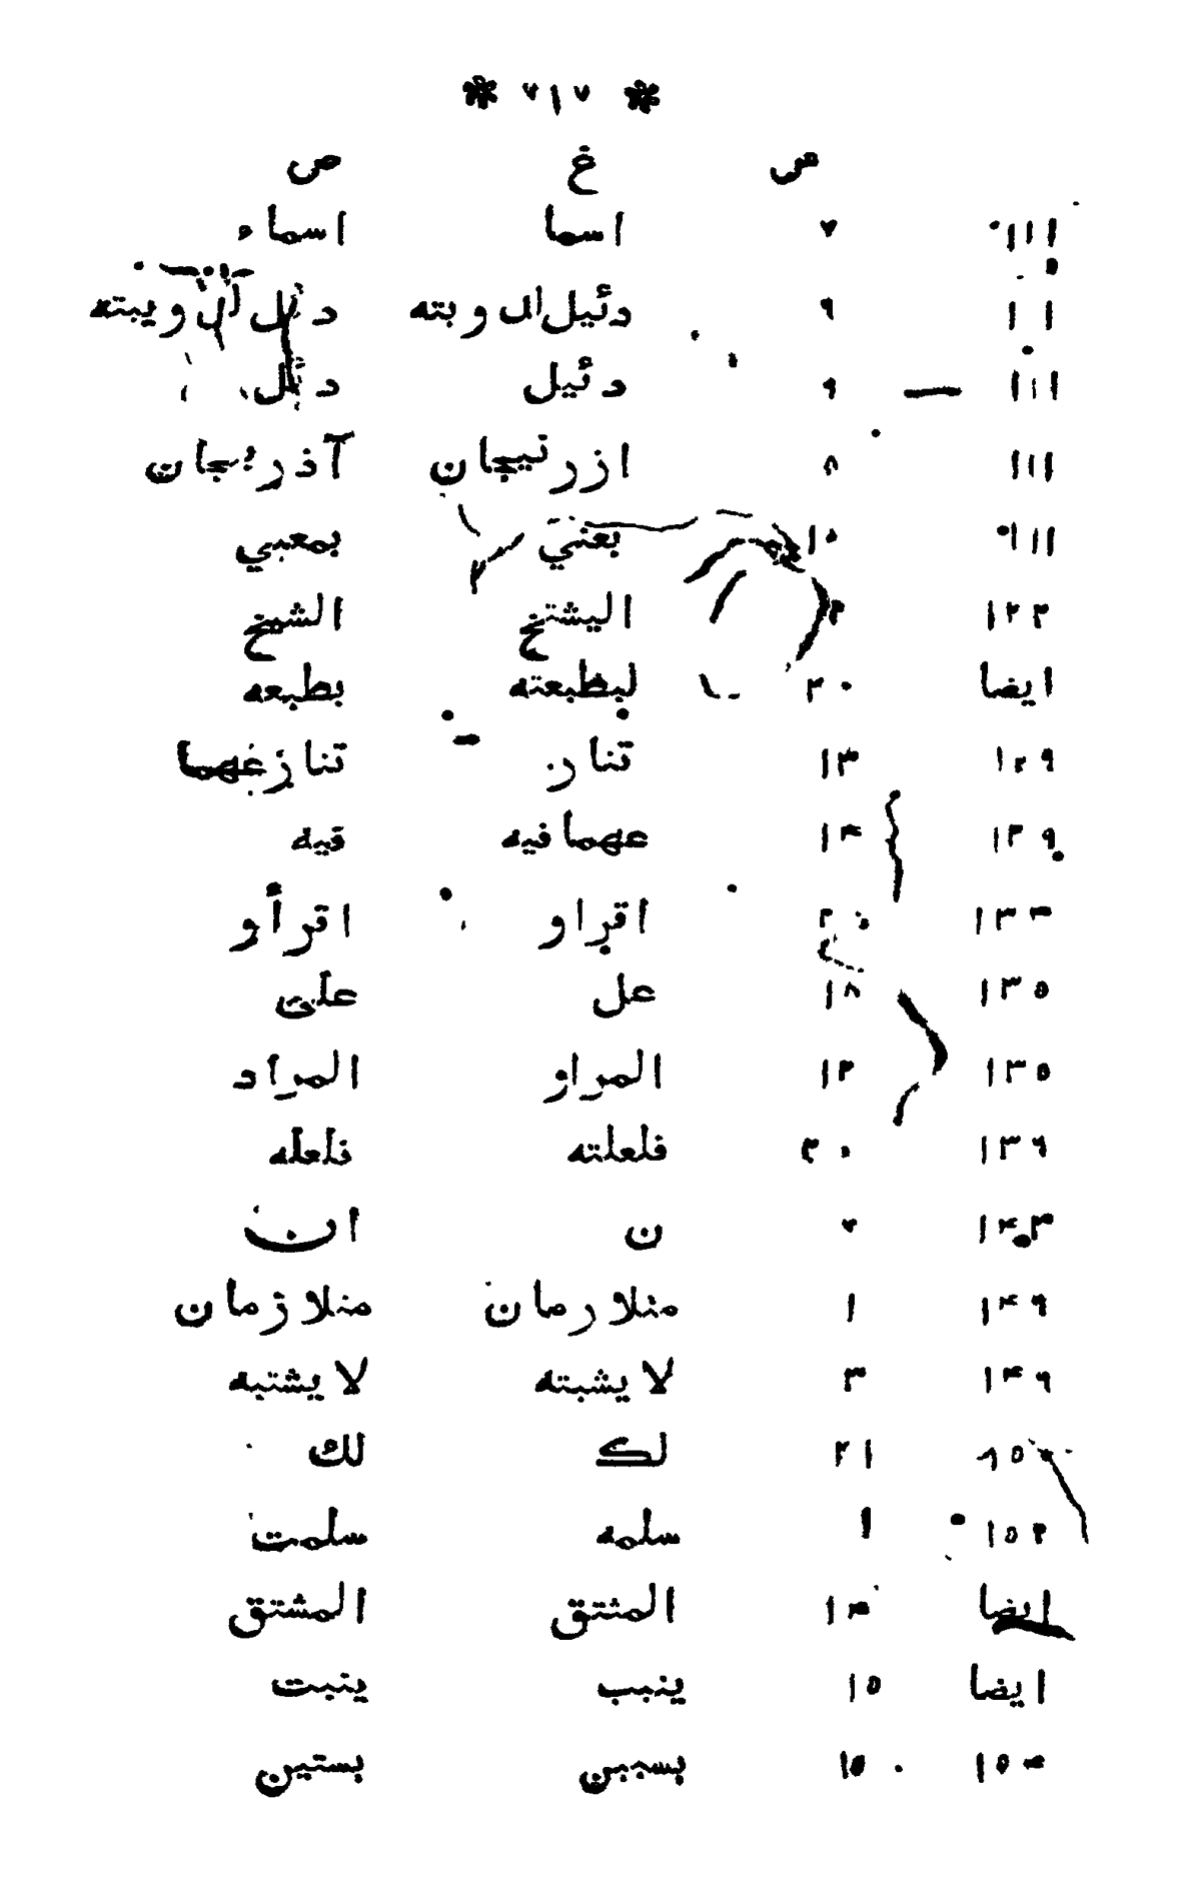 * ٧١٧ *
س غ ص
١١١ ٧ اسما اسماء
١١ ٩ دئيل وبته ويبته
١١١ ٩ دئيل
١١١ ٨ ازرنيجان آذربيجان
١١١ ١٥ بعني بمعبي
١٢٢ اليشتخ الشيخ
ايضا ٢٠ لبظبعته بطبعه
١٢٩ ١٣ تنار تنازعهما
١٢٩ ١٤ عهمافيه فيه
١٣٣ ٢٠ اقراو اقرأو
١٣٥ ١٨ عل على
١٣٥ ١٢ المراو المراد
١٣٦ ٢٠ فلعلته فلعله
١٤٣ ٧ ن ان
١٤٩ ١ منلارمان منلازمان
١٤٩ ٣ لايشبته لايشتبه
٢١ لك لك
١٥٢ ١ سلمه سلمت
ايضا ١٣ المنتق المشتق
ايضا ١٥ ينبب ينبت
١٥٣ ١٥ بسببن بستين